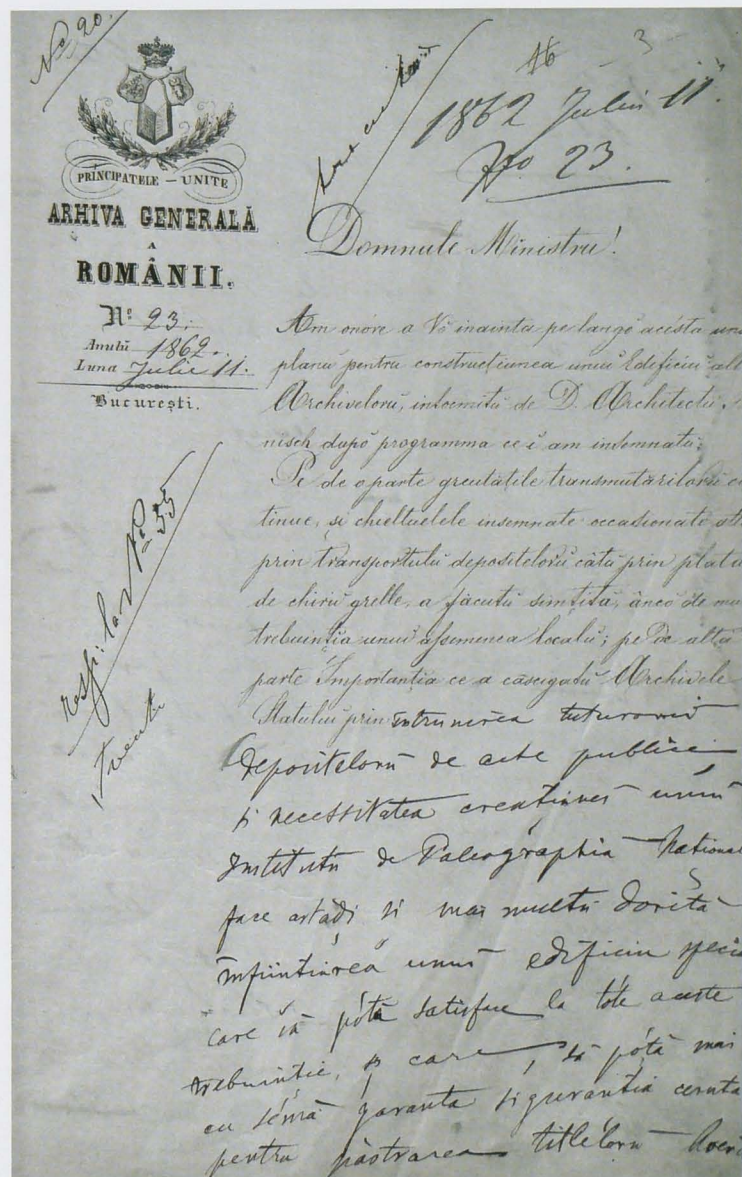 No 20.
PRINCIPATELE – UNITE
ARHIVA GENERALĂ
A
ROMÂNII.
No 23.
Anulŭ 1862.
Luna Julie 11.
Bucuresṭi.
16 – 3
1862 Juliu 11.
No 23.
Domnule Ministru!
Am onóre a Vĕ inainta pe langĕ acésta unŭ
planŭ pentru construcṭiunea unuĭ Edificiŭ alŭ
Archivelorŭ, intocmitŭ de D. Architectŭ
nisch dupŏ programma ce ĭ am insemnatŭ:
Pe de o parte greutăṭile transmutărilorŭ
tinue, si chieltuelele insemnate occasionate
prin transportulŭ depositelorŭ câtŭ prin plata
de chiriĭ grelle, a făcutŭ simṭită, âncŏ de
trebuinṭia unuĭ assemenea localŭ; pe de alta
parte Importanṭia ce a câscigatŭ Archivele
Statuluĭ prin întrunirea tuturorŭ
depositelorŭ de acte publice
si necessitatea creaṭiuneĭ unuĭ
Institutŭ de Paleographia National
face astădĭ si maĭ multŭ dorită
înfiinṭiarea unuĭ edificiu specia
care să pótă satisface la tóte aceste
trebuinṭie, si care să pótă maĭ
cu sémă garanta siguranṭia ceruta
pentru păstrarea titlelorŭ
resp: la No 55